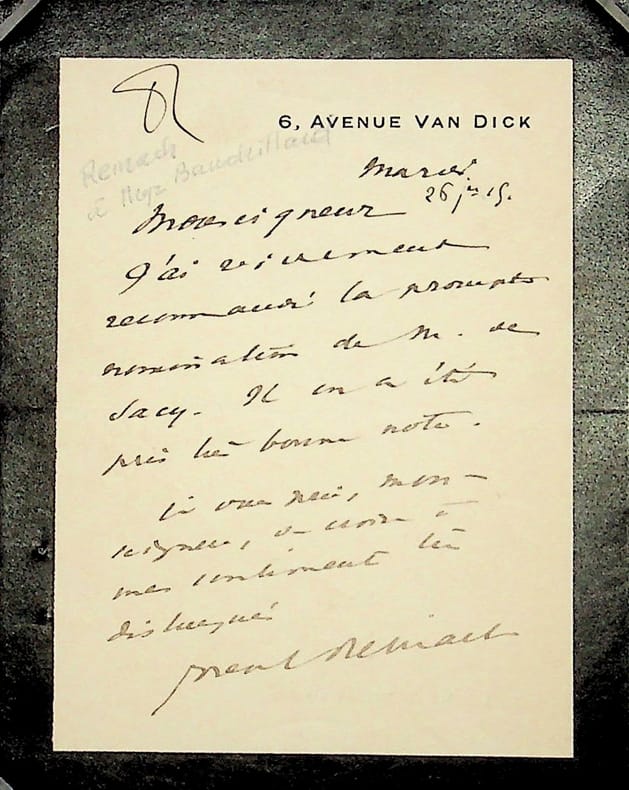 R
6, AVENUE VAN DICK
Reinach
à Mgr Baudrillard
Mardi
26 jer 15.
Monseigneur
J'ai vivement
recommandé la prompte
nomination de M. de
Sacy. Il en a été
pris très bonne note.
Je vous prie, mon-
seigneur, de croire à
mes sentiments très
distingués
Reinach